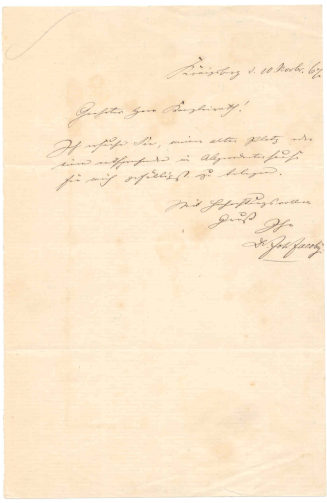 Königsberg d. 10 Novbr. 67.
Geehrter Herr Kanzleirath!
Ich ersuche Sie, meinen alten Platz oder
einen entsprechenden im Abgeordnetenhause
für mich gefälligst zu belegen.
Mit hochachtungsvollem
Gruß Ihr
Dr Joh. Jacoby